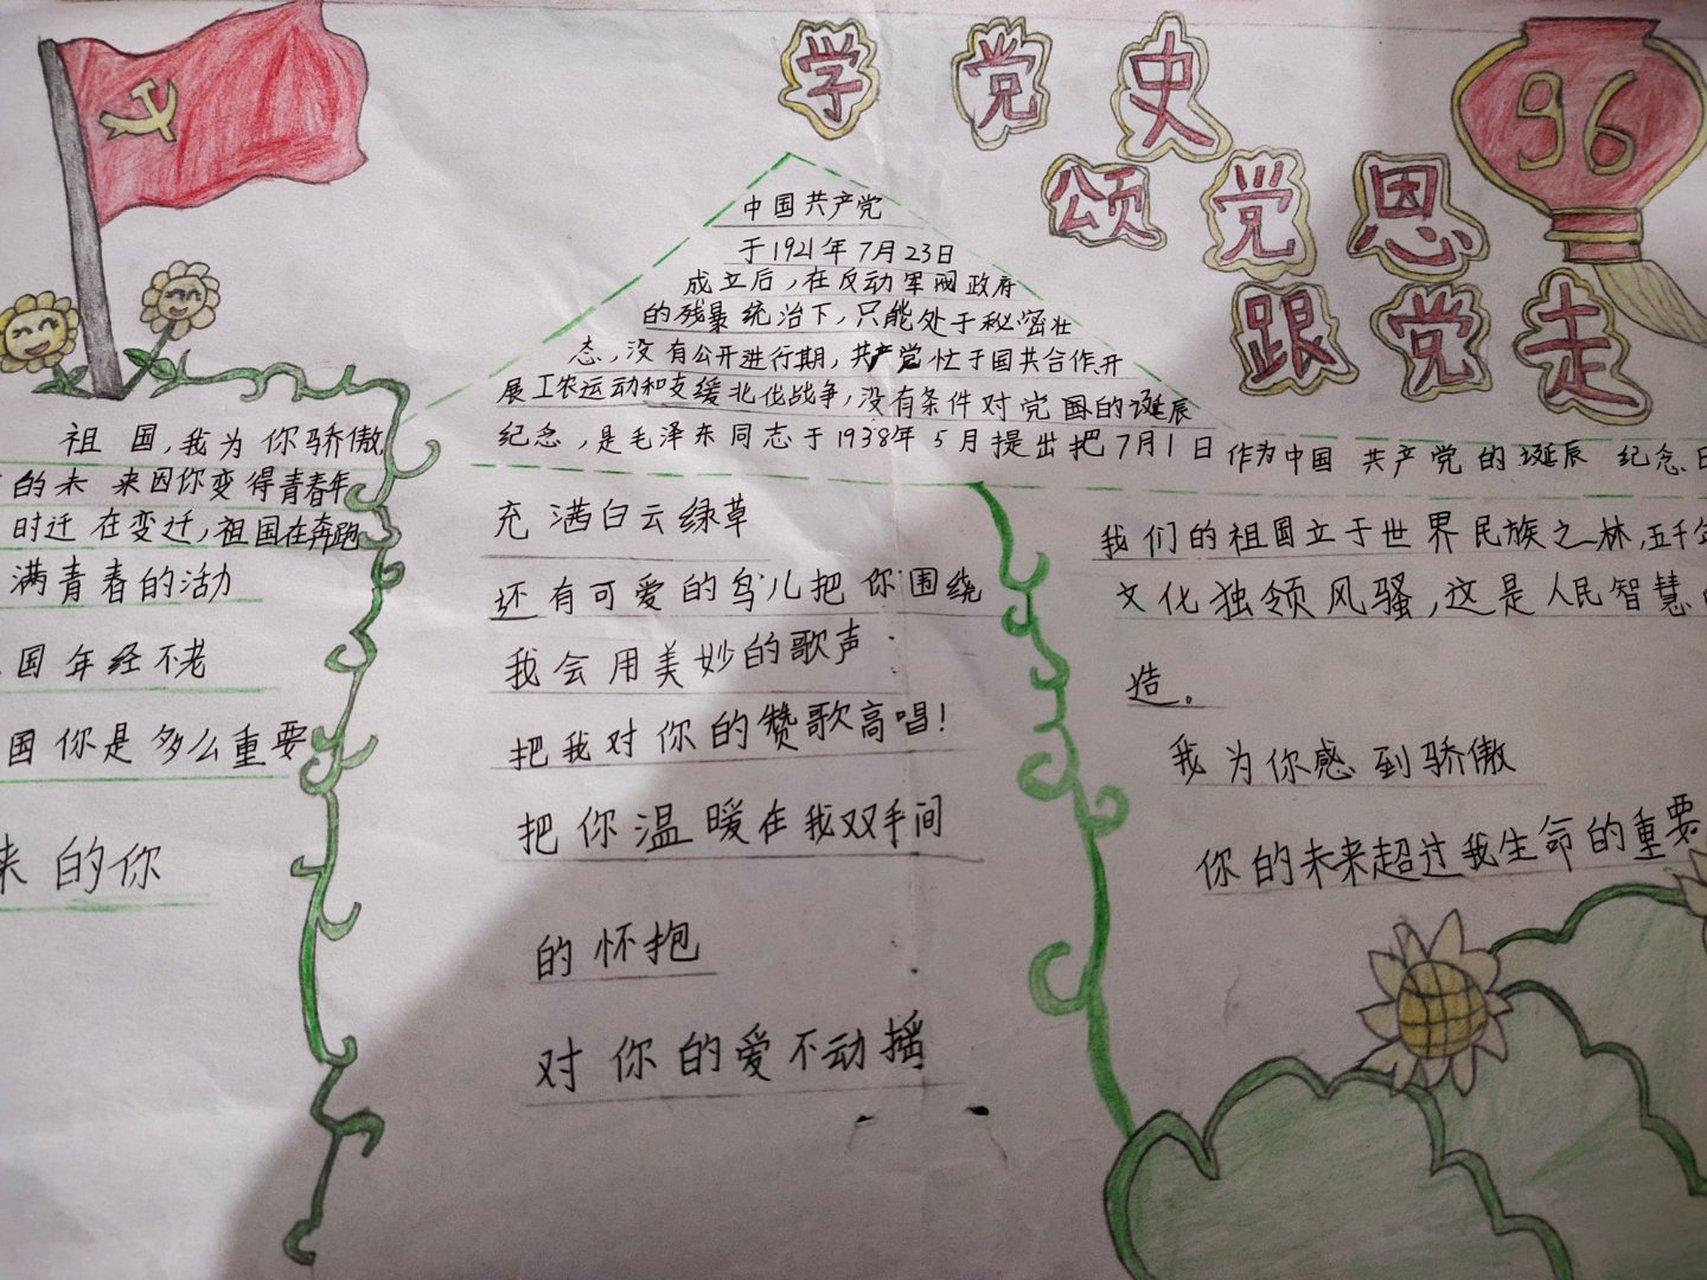 学党史
96
颂党恩
跟党走
中国共产党
于1921年7月23日
成立后,在反动军阀政府
的残暴统治下,只能处于秘密壮
态,没有公开进行期,共产党忙于国共合作开
展工农运动和支缓北伐战争,没有条件对党国的诞辰
纪念,是毛泽东同志于1938年5月提出把7月1日作为中国共产党的诞辰纪念日
祖国,我为你骄傲
的未来因你变得青春年
时迁在变迁,祖国在奔跑
满青春的活力
国年经不老
国你是多么重要
来的你
充满白云绿草
还有可爱的鸟儿把你围绕
我会用美妙的歌声
把我对你的赞歌高唱!
把你温暖在我双手间
的怀抱
对你的爱不动摇
我们的祖国立于世界民族之林,五千年
文化独领风骚,这是人民智慧
造。
我为你感到骄傲
你的未来超过我生命的重要